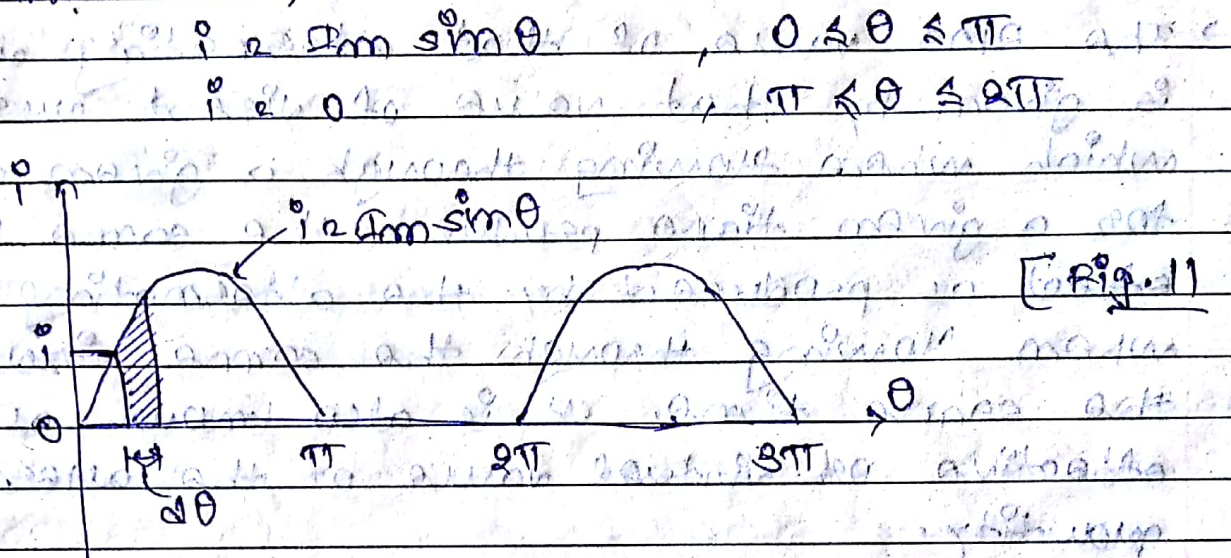 i = Im sin θ , 0 ≤ θ ≤ π
i = 0 , π ≤ θ ≤ 2π
i
i = Im sin θ
[Fig. 1]
i
0 π 2π 3π θ
dθ